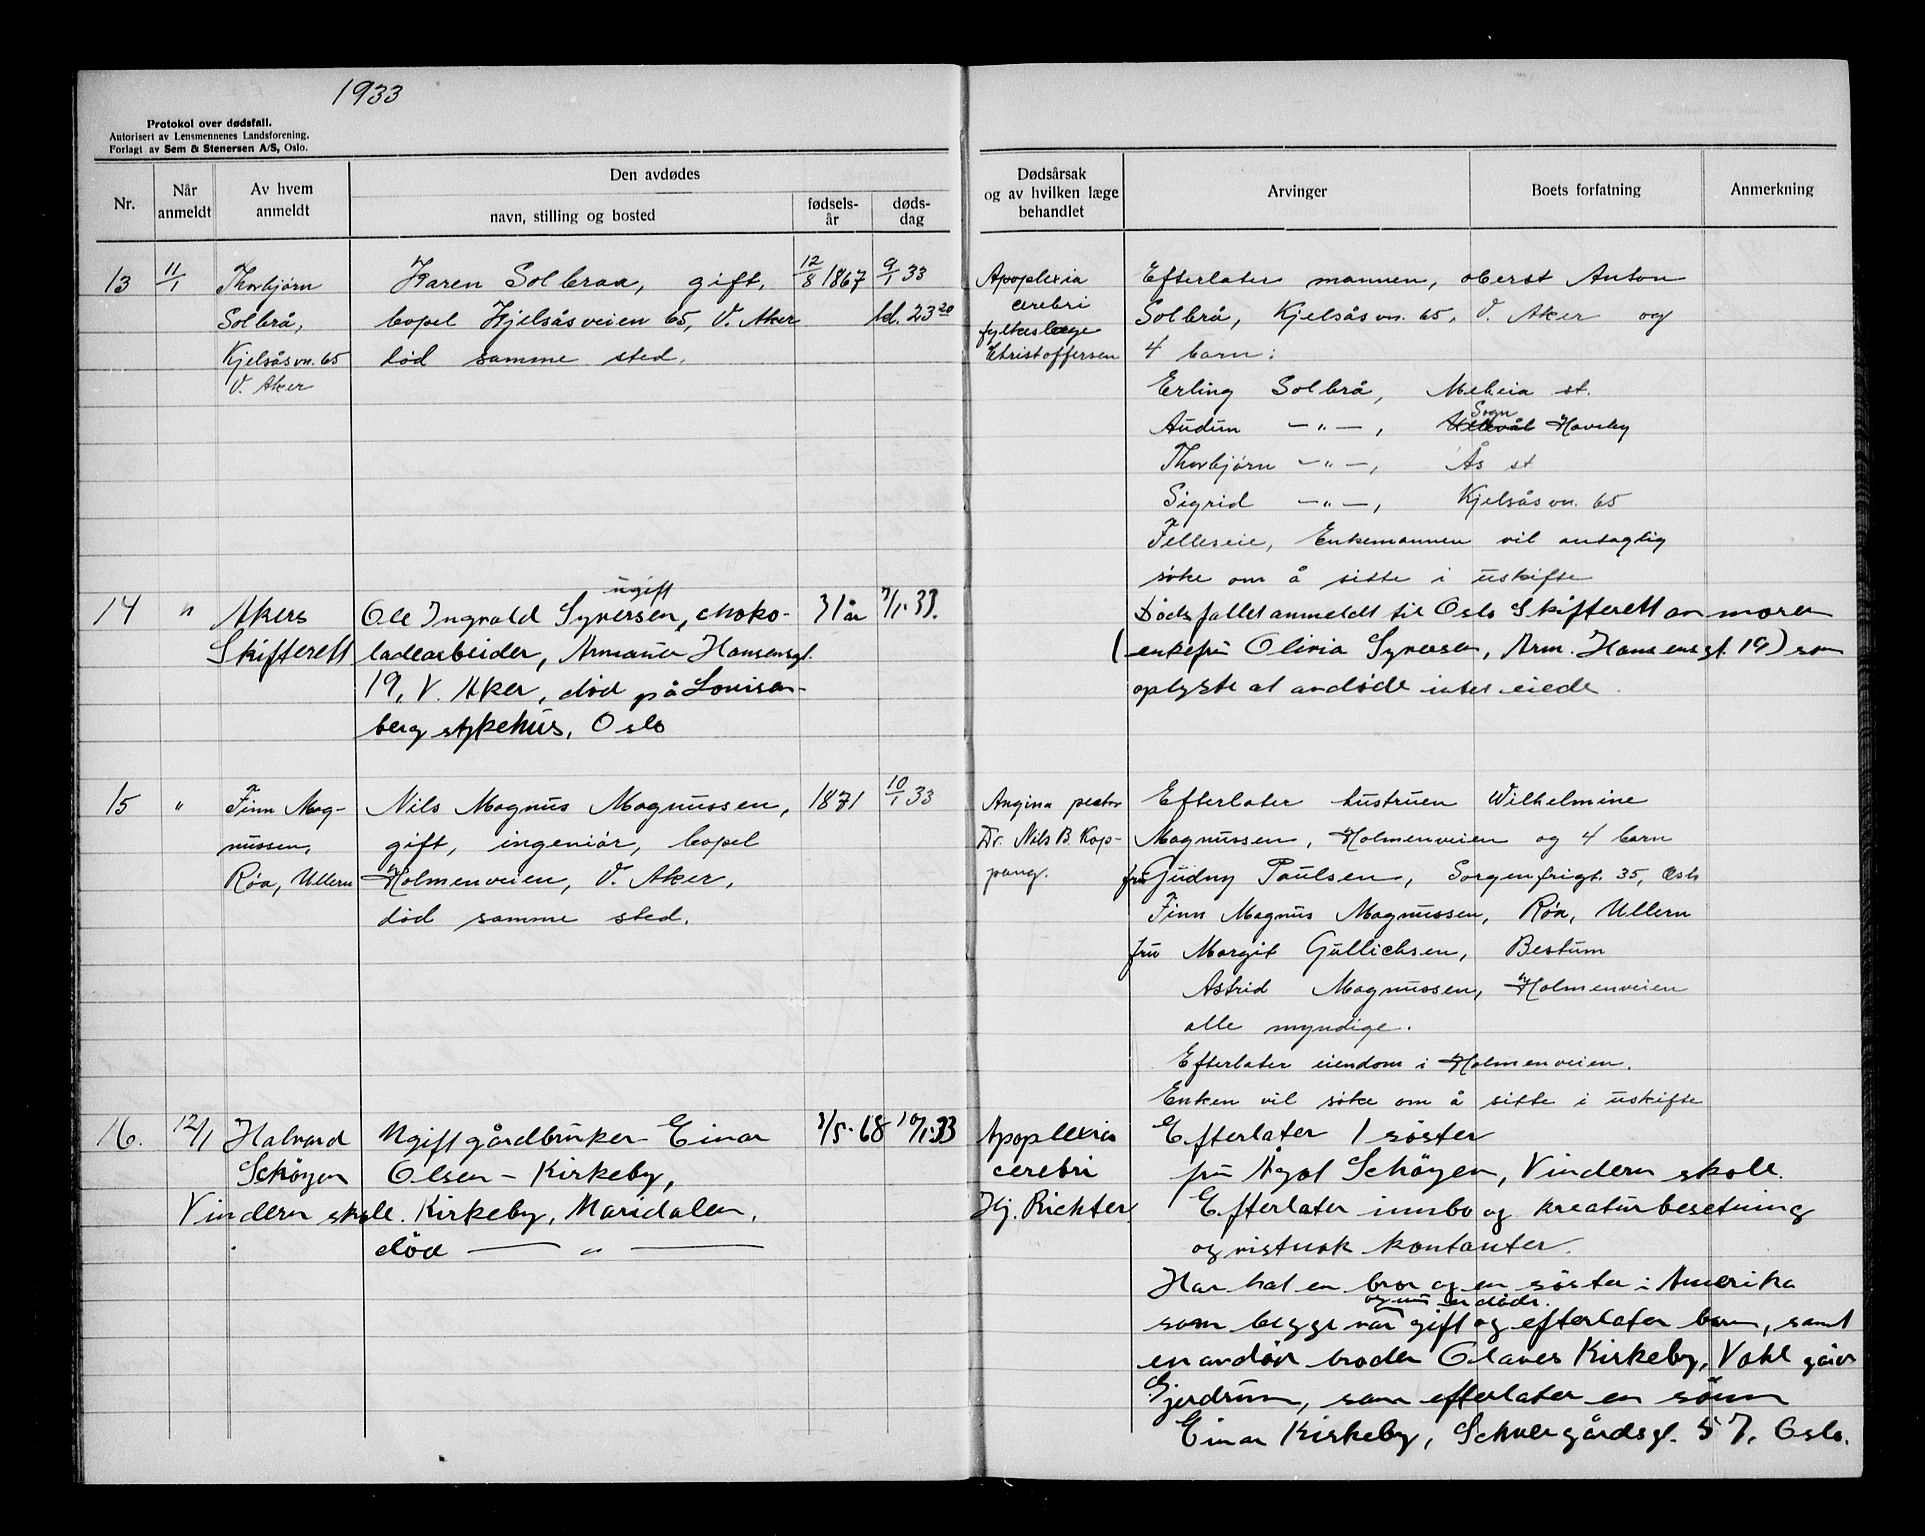 1933
Protokol over dødsfall.
Autorisert av Lensmennenes Landsforening.
Forlagt av Sem & Stenersen A/S, Oslo.
Nr.
Når anmeldt
Av hvem anmeldt
Den avdødes
navn, stilling og bosted
fødsels-
år
døds-
dag
Dødsårsak
og av hvilken læge
behandlet
Arvinger
Boets forfatning
Anmerkning
13
11/1
Thorbjørn
Solbrå,
Kjelsåsvn. 65
V. Aker
Karen Solbraa, gift,
bopel Kjelsåsveien 65, V. Aker
død samme sted.
12/8 1867
9/1 33
kl. 23 20
Apoplexia
cerebri
fylkeslæge
Christoffersen
Efterlater mannen, oberst Anton
Solbrå, Kjelsåsvn. 65, V. Aker og
4 barn:
Erling Solbrå, Meheia st.
Sogn
Audun —"—, Ullevål Haveby
Thorbjørn —"—, Ås st
Sigrid —"—, Kjelsåsvn. 65
Felleseie, Enkemannen vil antaglig
søke om å sitte i uskifte
14
"
Akers
Skifterett
ugift
Ole Ingvald Syversen, choko-
ladearbeider, Armauer Hansensgt.
19, V. Aker, død på Lovisen-
berg sykehus, Oslo
31 år
7/1-33.
Dødsfallet anmeldt til Oslo Skifterett av moren
(enkefru Olivia Syversen, Arm. Hansensgt. 19) som
oplyste at avdøde intet eiede.
15
"
Finn Mag-
nussen,
Røa, Ullern
Nils Magnus Magnussen,
gift, ingeniør, bopel
Holmenveien, V. Aker,
død samme sted.
1871
10/1 33
Angina pector
Dr. Nils B. Kop-
pang.
Efterlater hustruen Wilhelmine
Magnussen, Holmenveien og 4 barn
fru Gudny Paulsen, Sorgenfrigt. 35, Oslo
Finn Magnus Magnussen, Røa, Ullern
fru Margit Gullichsen, Bestum
Astrid Magnussen, Holmenveien
alle myndige.
Efterlater eiendom i Holmenveien.
Enken vil søke om å sitte i uskifte
16.
12/1
Halvard
Schøyen
Vindern skole.
Ugift gårdbruker Einar
Olsen - Kirkeby,
Kirkeby, Maridalen,
død — " —
3/5-68
10/1-33
Apoplexia
cerebri
Hj. Richter
Efterlater 1 søster
fru Ågot Schøyen, Vindern skole.
Efterlater innbo og kreaturbesetning
og vistnok kontanter.
Har hat en bror og en søster i Amerika
og nu er døde.
som begge var gift og efterlater barn, samt
en avdød broder Olaves Kirkeby, Vahl gård
Gjerdrum, som efterlater en sønn
Einar Kirkeby, Schweigårdsgt. 57, Oslo.